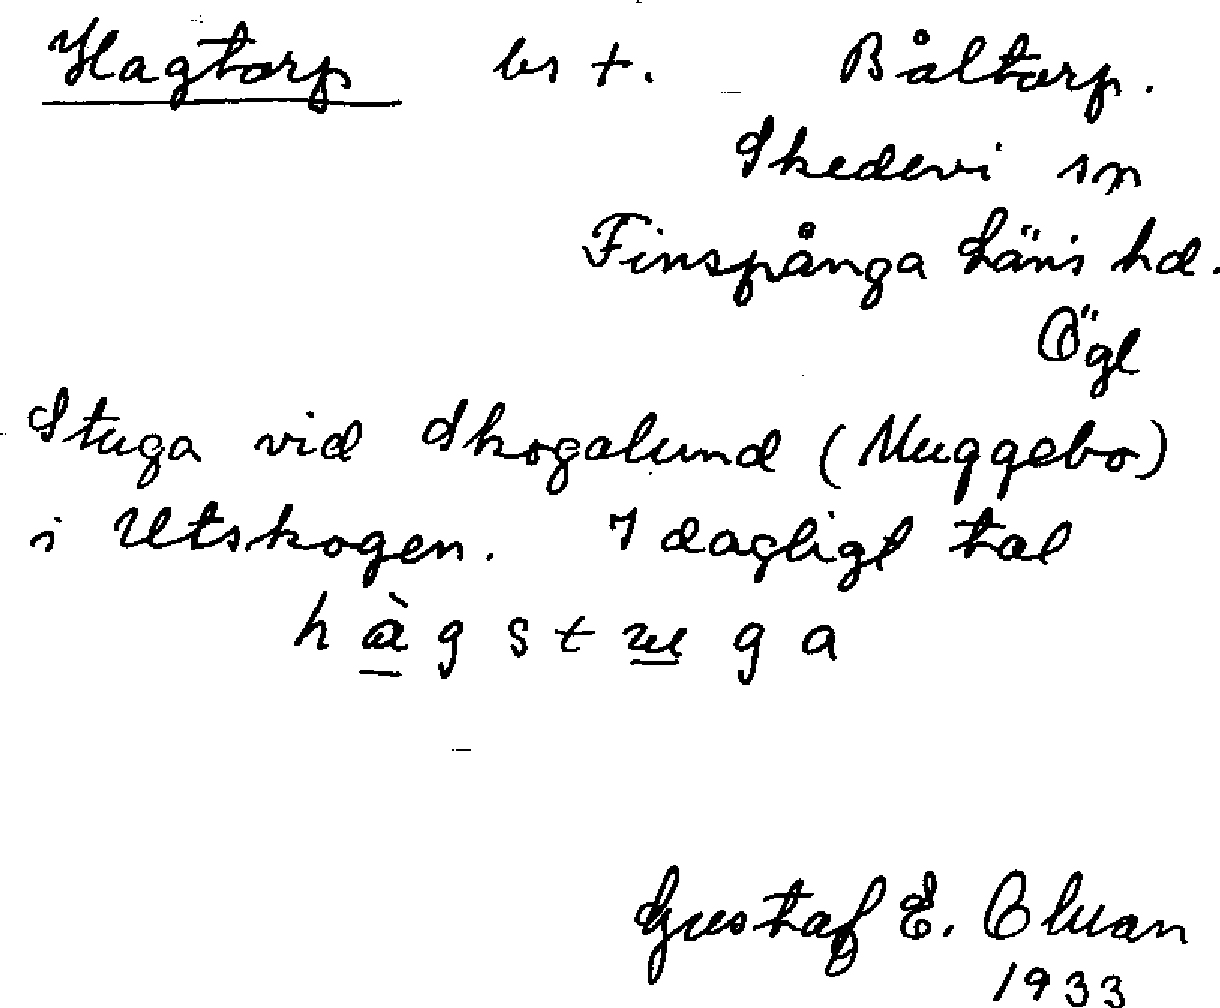 Hagtorp bs t. Båltorp.
Skedevi sn
Finspånga läns hd.
Ögl
Stuga vid Skogalund (Muggebo)
i Utskogen. I dagligt tal
hàgstuga
Gustaf E.
1933